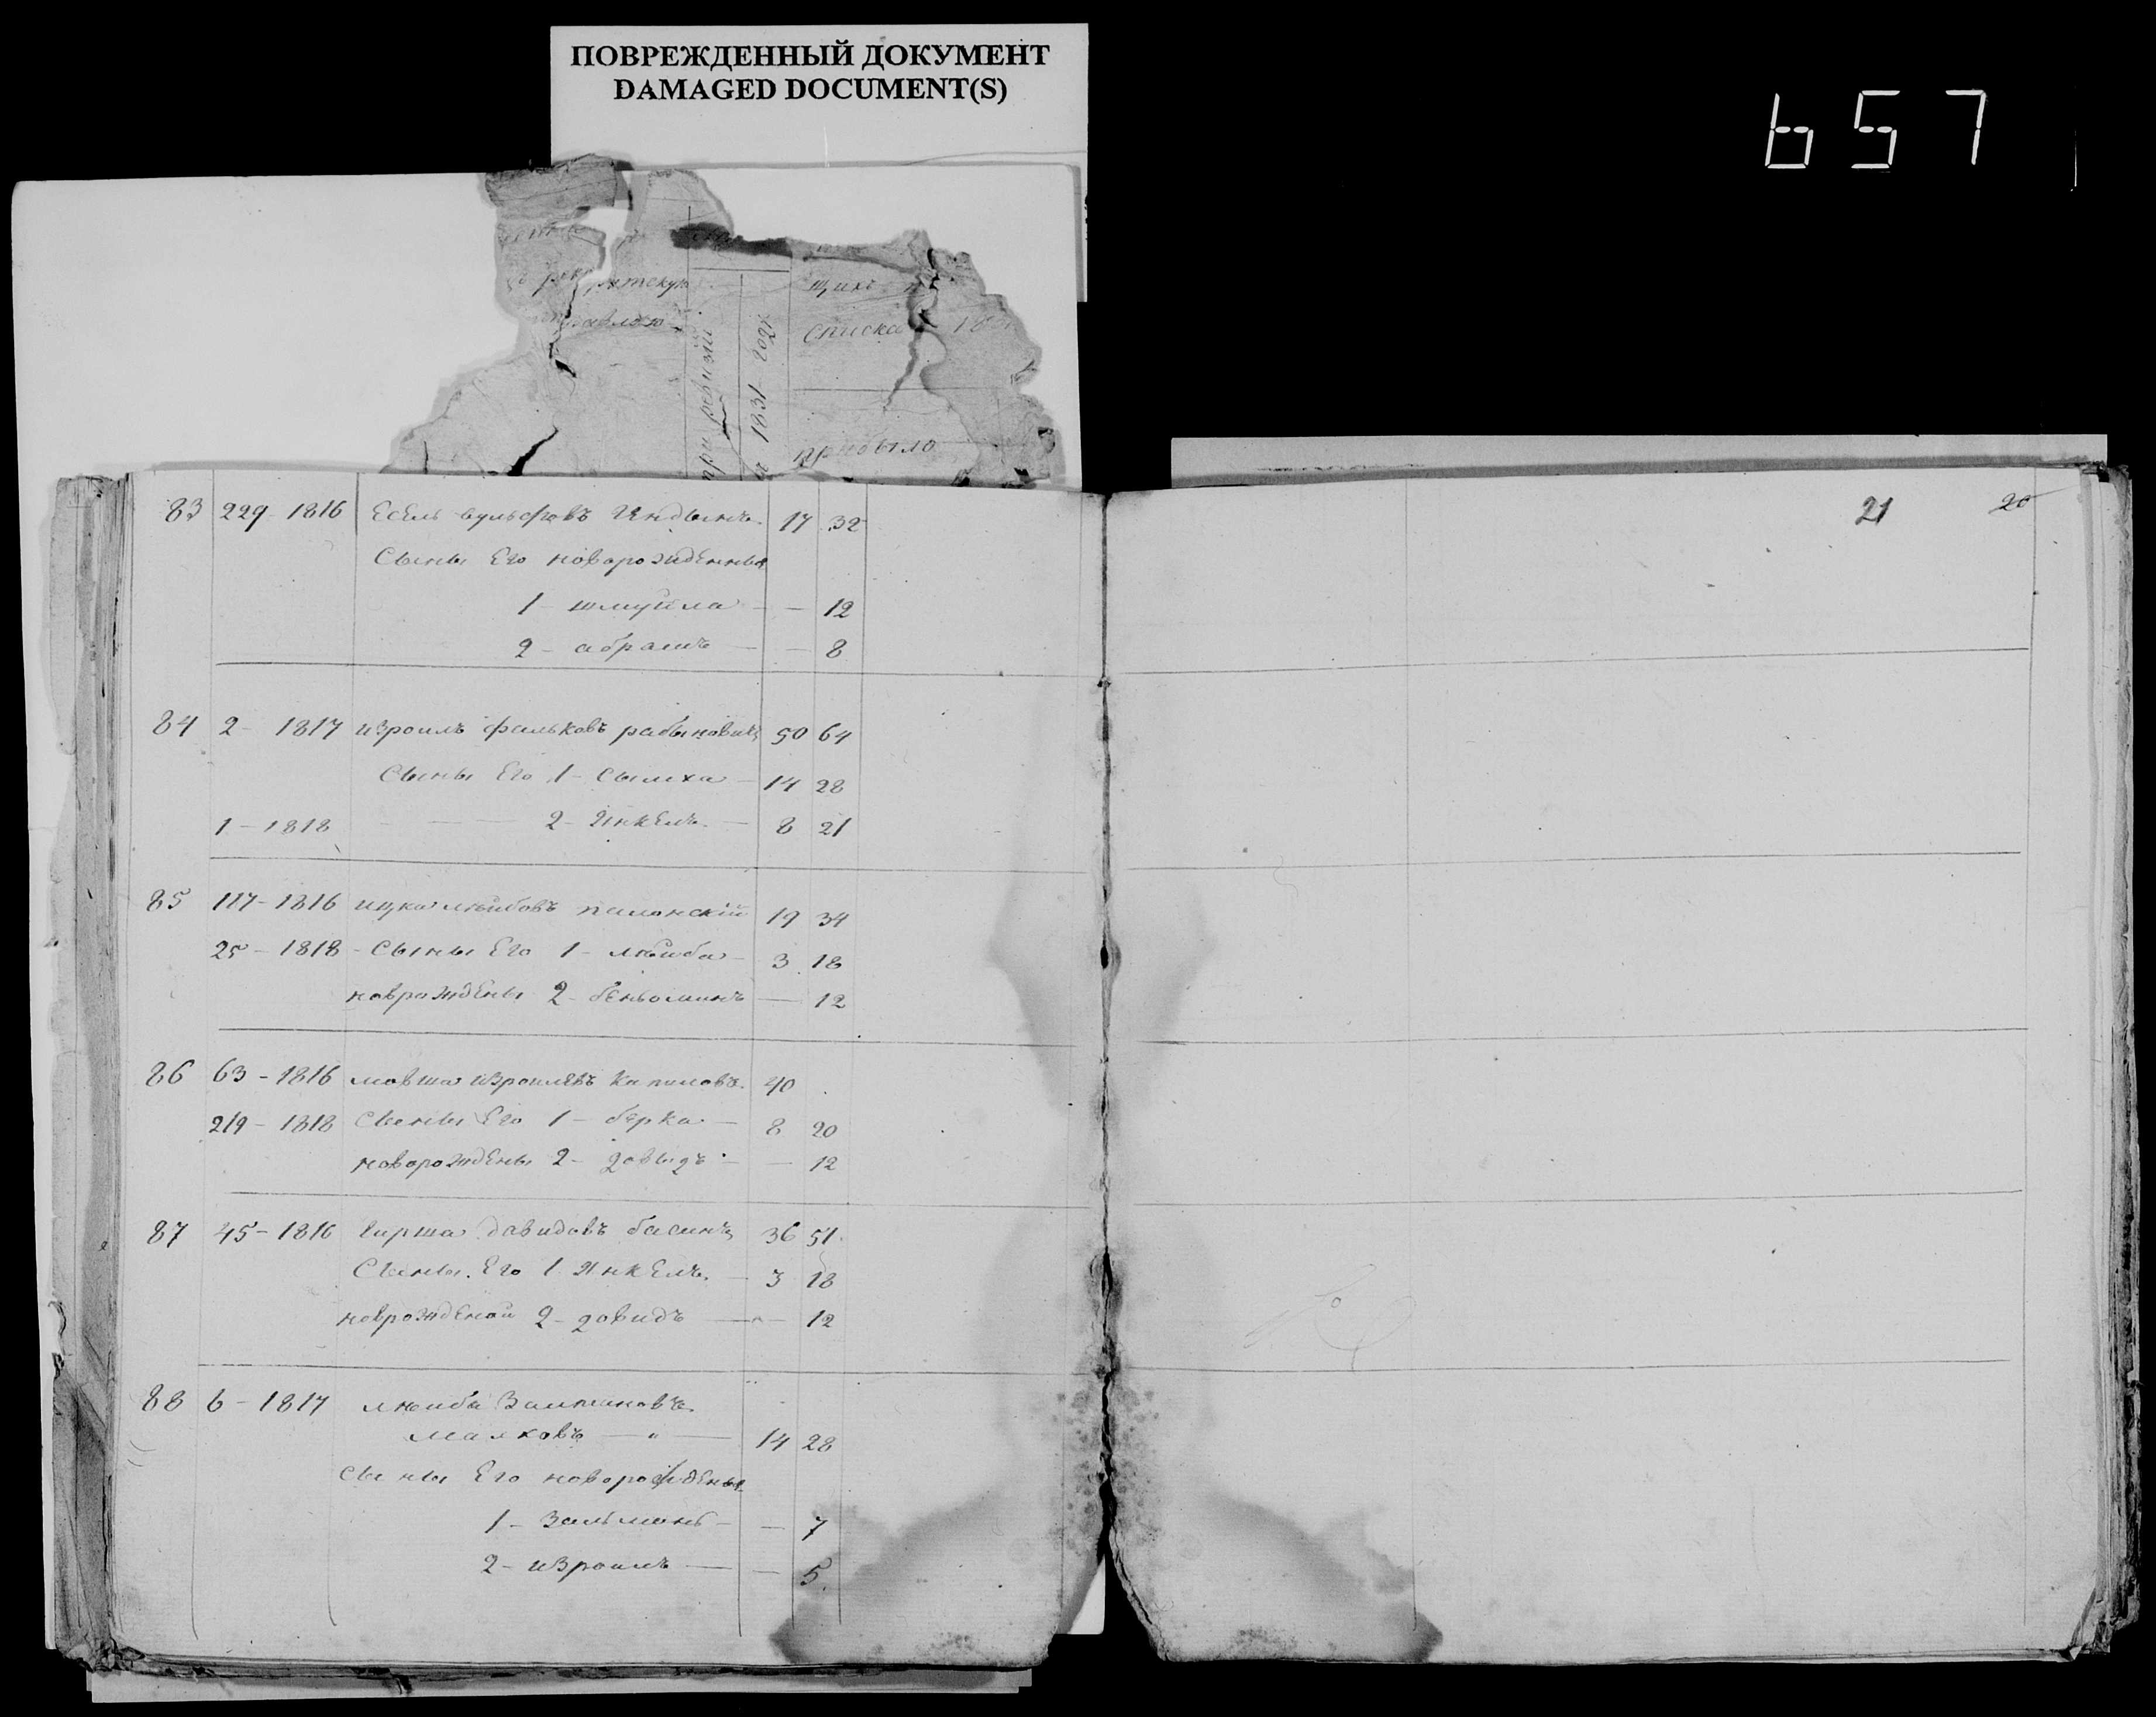 ПОВРЕЖДЕННЫЙ ДОКУМЕНТ
DAMAGED DOCUMENT(S)
657
щихъ
списка
при ревизіи
1831 году
прибыло
21 20
83 229 1816 Есель вульфовъ Индынъ 17 32
Сыны Его новорожденныя
1 - шмуйла - - 12
2 - абрамъ - - 8
84 2 - 1817 израиль фальковъ рабыновичъ 50 64
Сыны Его 1 - Сымха - 14 28
1 - 1818 - - - 2 - Янкель - 8 21
85 117 - 1816 ицка лѣйбовъ палонскій 19 34
25 - 1818 - Сыны Его 1 - лѣйба - 3 18
новрождены 2 - беньоминъ - 12
86 63 - 1816 мовша израилевъ Капиловъ 40
219 - 1818 Сыны Его 1 - берка - 8 20
новорождены 2 - довыдъ - - 12
87 45 - 1816 гирша давидовъ басинъ 36 51
Сыны Его 1 Янкель - 3 18
новрожденой 2 - довидъ - - 12
88 6 - 1817 лѣйба Залмановъ
Малковъ - " - 14 28
Сыны Его новорожденыя
1 - Зальманъ - - 7
2 - израиль - - 5.